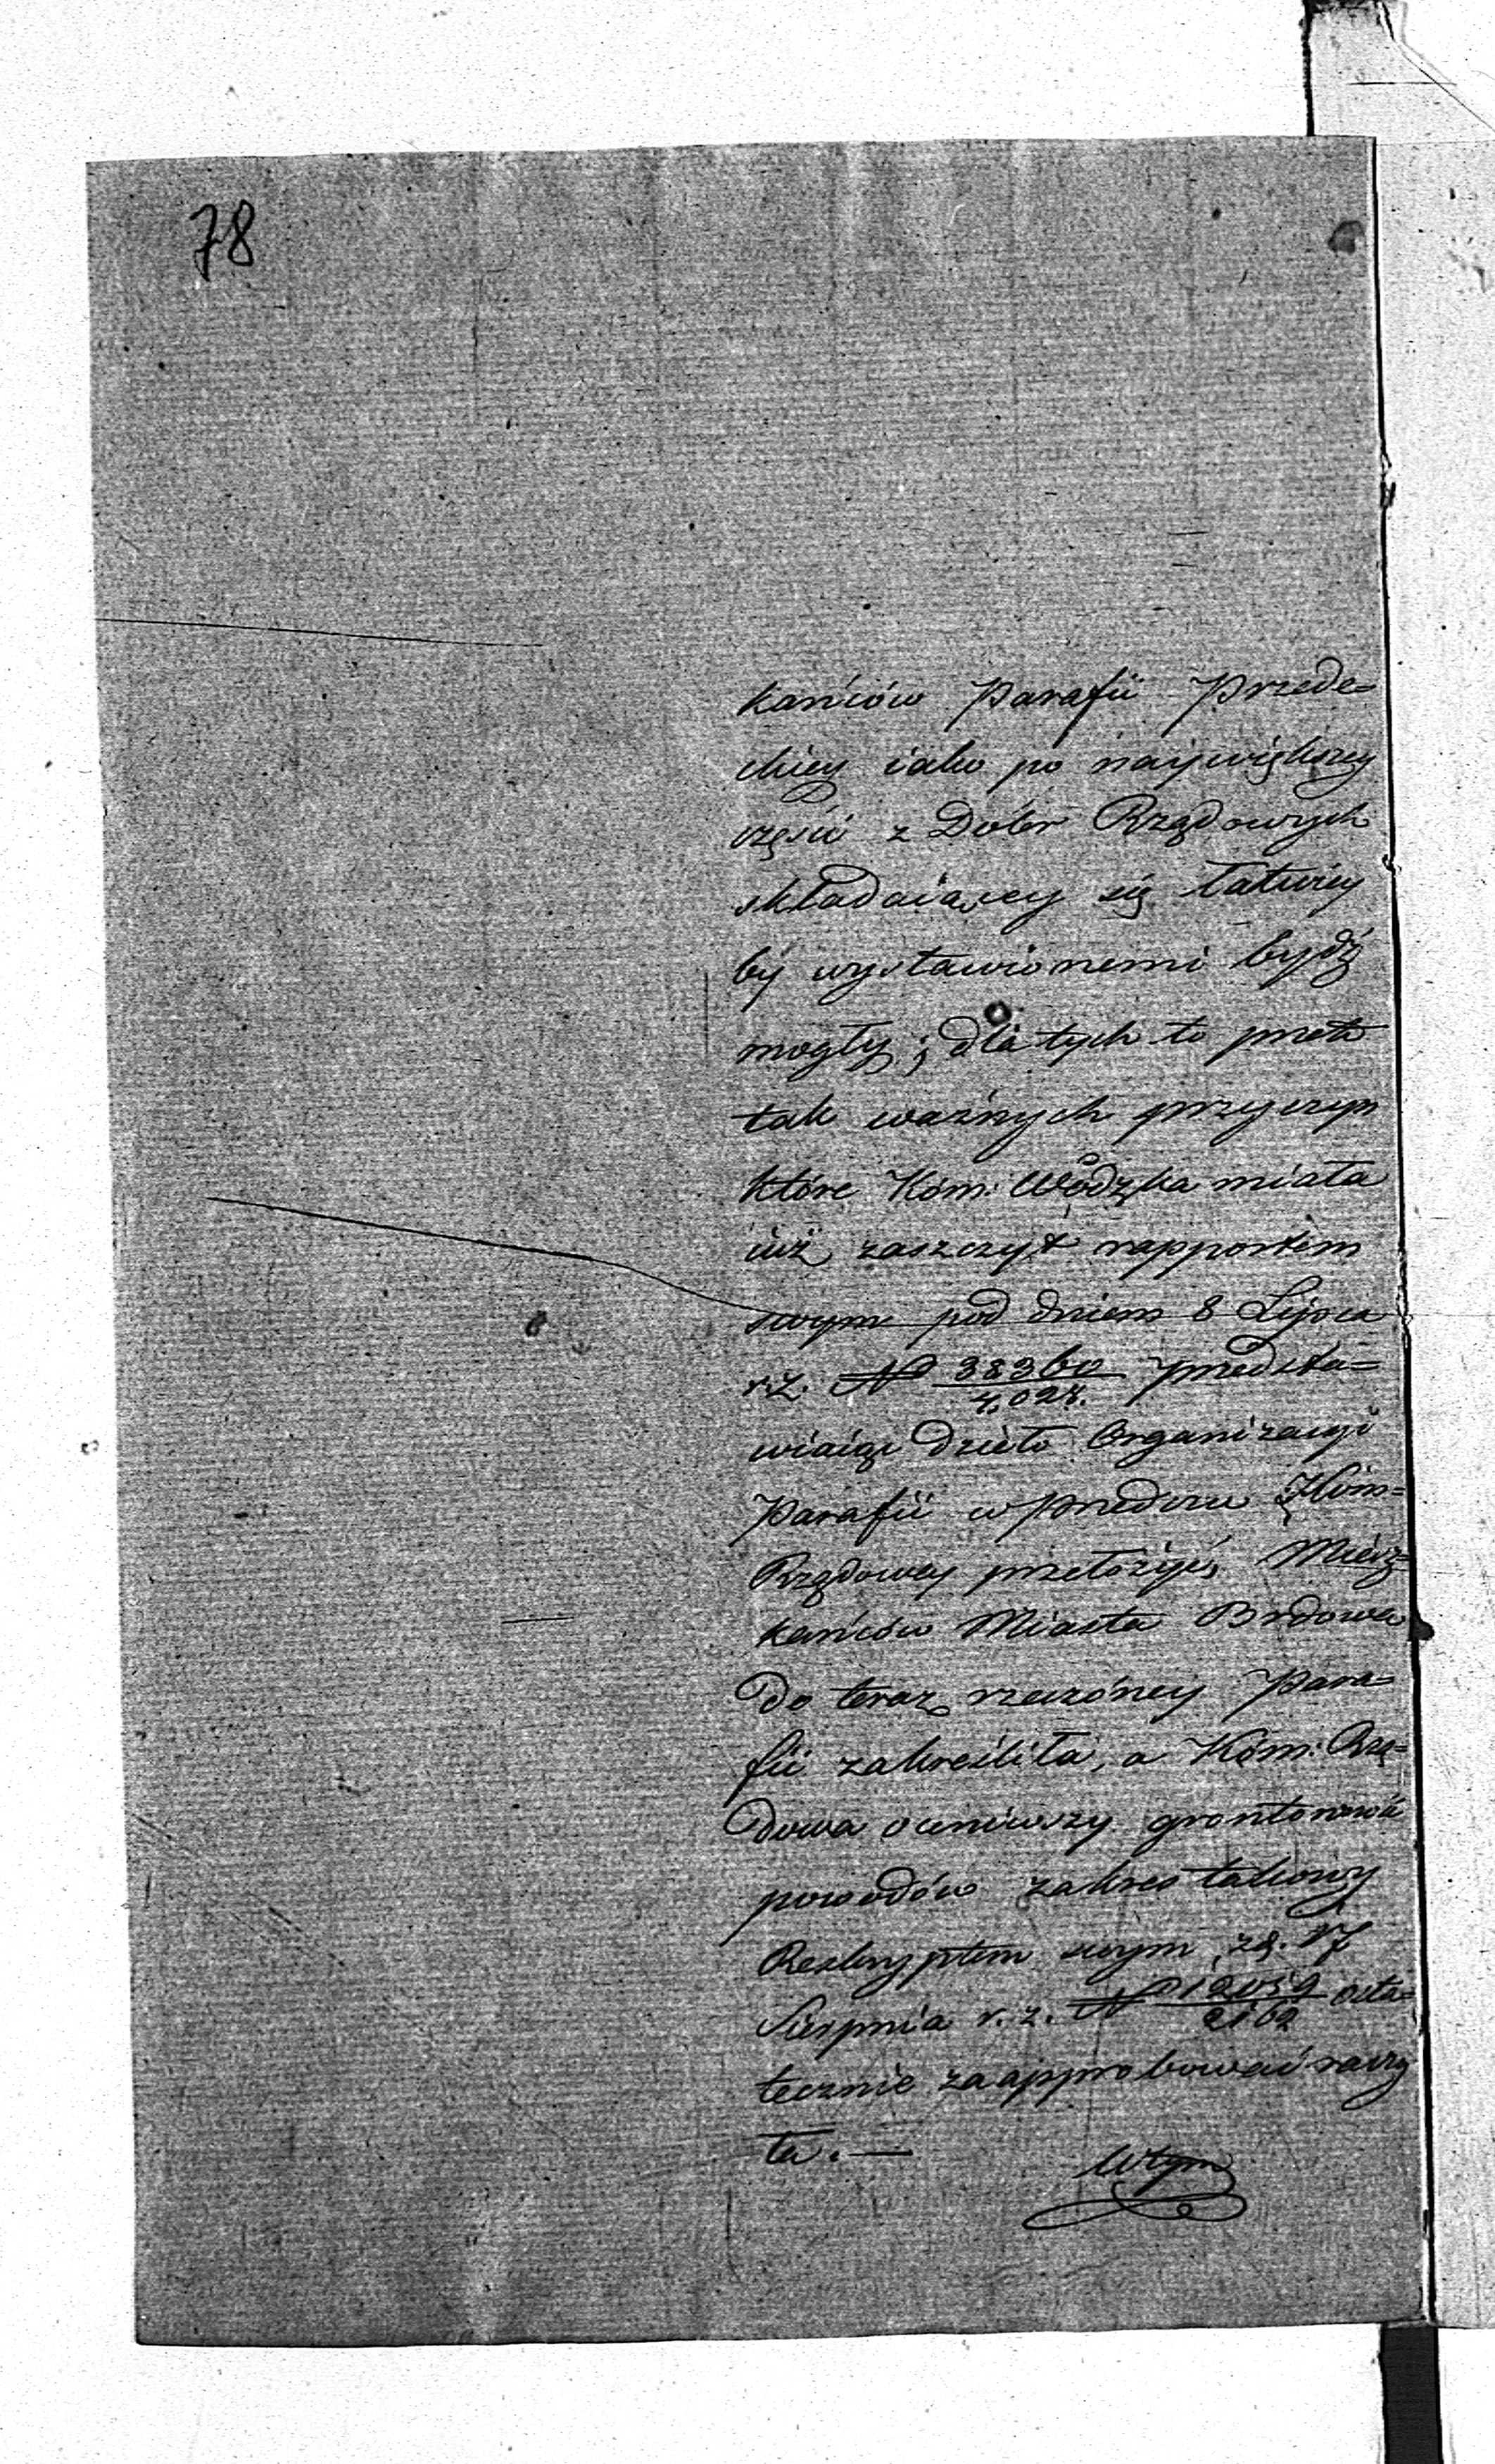 78
kańców Parafii Przede=
ckiey iako po największey
części z Dóbr Rządowych
składaiącey się łatwiey
by wystawionemi bydź
mogły; dla tych to przeto
tak ważnych przyczyn
które Kom: Wodzka miała
iuż zaszczyt rapportem
swym pod dniem 8 Lipca
r.z. N 38360/4.028. przedsta=
wiaiąc dzieło Organizacyi
Parafii w Przedczu Kom=
Rządowey przełożyć, Miesz=
kańców Miasta Brdowa
do teraz rzeczóney Para=
fii zakreśliła, a Kom: Rzą=
dowa oceniwszy gruntowność
powodów zakres takowy
Reskryptem swym z d. 17
Sierpnia r. z. N 12039/2162 osta=
tecznie zaapprobować raczy
ła. —
W tym